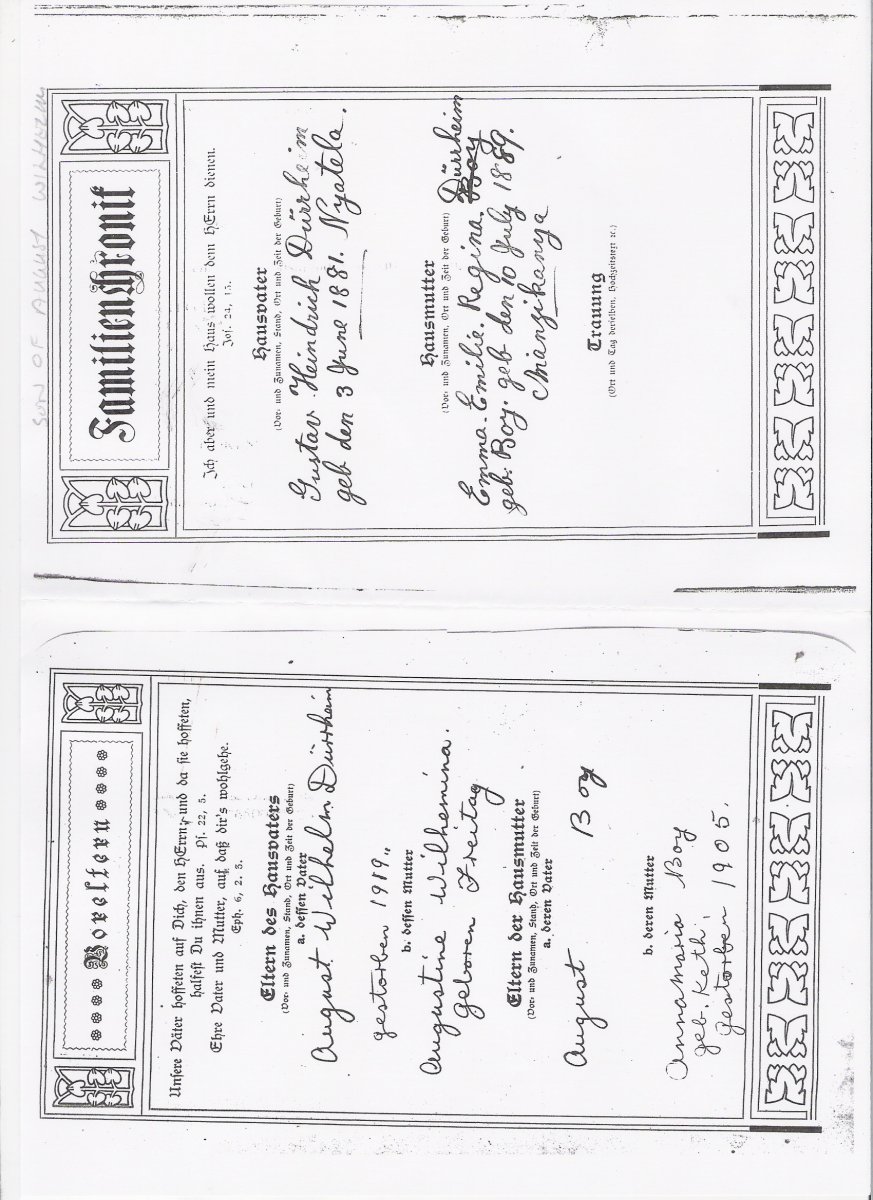 Voreltern
Unsere Väter hoffeten auf Dich, den HErrn, und da sie hoffeten,
halfest Du ihnen aus. Ps. 22, 5.
Ehre Vater und Mutter, auf daß dir's wohlgehe.
Eph. 6, 2. 3.
Eltern des Hausvaters
(Vor- und Zunamen, Stand, Ort und Zeit der Geburt)
a. dessen Vater
August Wilhelm Dürrheim
gestorben 1919.,
b. dessen Mutter
Augustine Wilhemina.
geboren Freitag
Eltern der Hausmutter
(Vor- und Zunamen, Stand, Ort und Zeit der Geburt)
a. deren Vater
August Boy
b. deren Mutter
Annamaria Boy
geb. Keth.
gestorben 1905.
SON OF AUGUST WILHELM
Familienchronik
Ich aber und mein Haus wollen dem HErrn dienen.
Jos. 24, 15.
Hausvater
(Vor- und Zunamen, Stand, Ort und Zeit der Geburt)
Gustav Heindrich Dürrheim
geb den 3 June 1881. Nyatela.
Hausmutter
(Vor- und Zunamen, Ort und Zeit der Geburt)
Dürrheim
Emma. Emilie. Regina. Boy
geb. Boy. geb den 10 July 1889.
Mangikanya
Trauung
(Ort und Tag derselben, Hochzeitstext etc.)